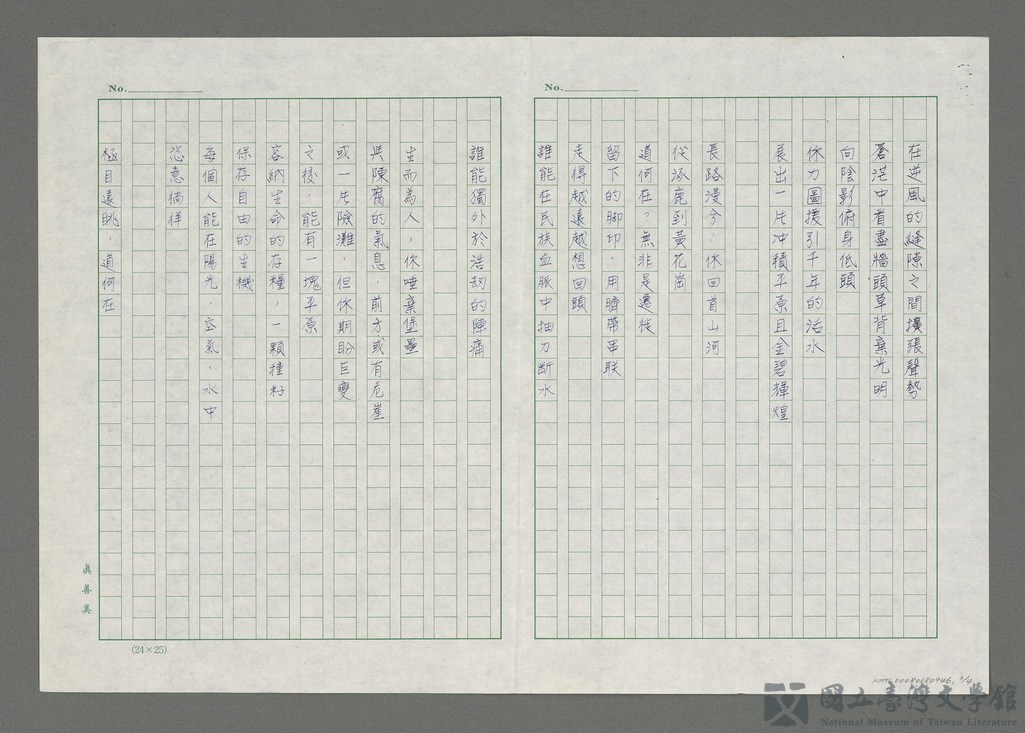 No.
在逆風的縫隙之間擴張聲勢
蒼茫中看盡牆頭草背棄光明
向陰影俯身低頭
你力圖援引千年的活水
展出一片沖積平原且金碧輝煌
長路漫兮,你回首山河
從涿鹿到黃花崗
道何在?無非是遷徙
留下的腳印,用臍帶串联
走得越遠越想回頭
誰能在民族血脈中抽刀斷水
No.
誰能獨外於浩劫的陣痛
生而為人,你唾棄堡壘
與陳腐的氣息,前方或有危崖
或一片險灘,但你期盼巨變
之後,能有一塊平原
容納生命的存糧,一顆種籽
保存自由的生機
每個人能在陽光,空氣,水中
恣意徜徉
極目遠眺,道何在
真善美
(24×25)
國立臺灣文學館
National Museum of Taiwan Literature